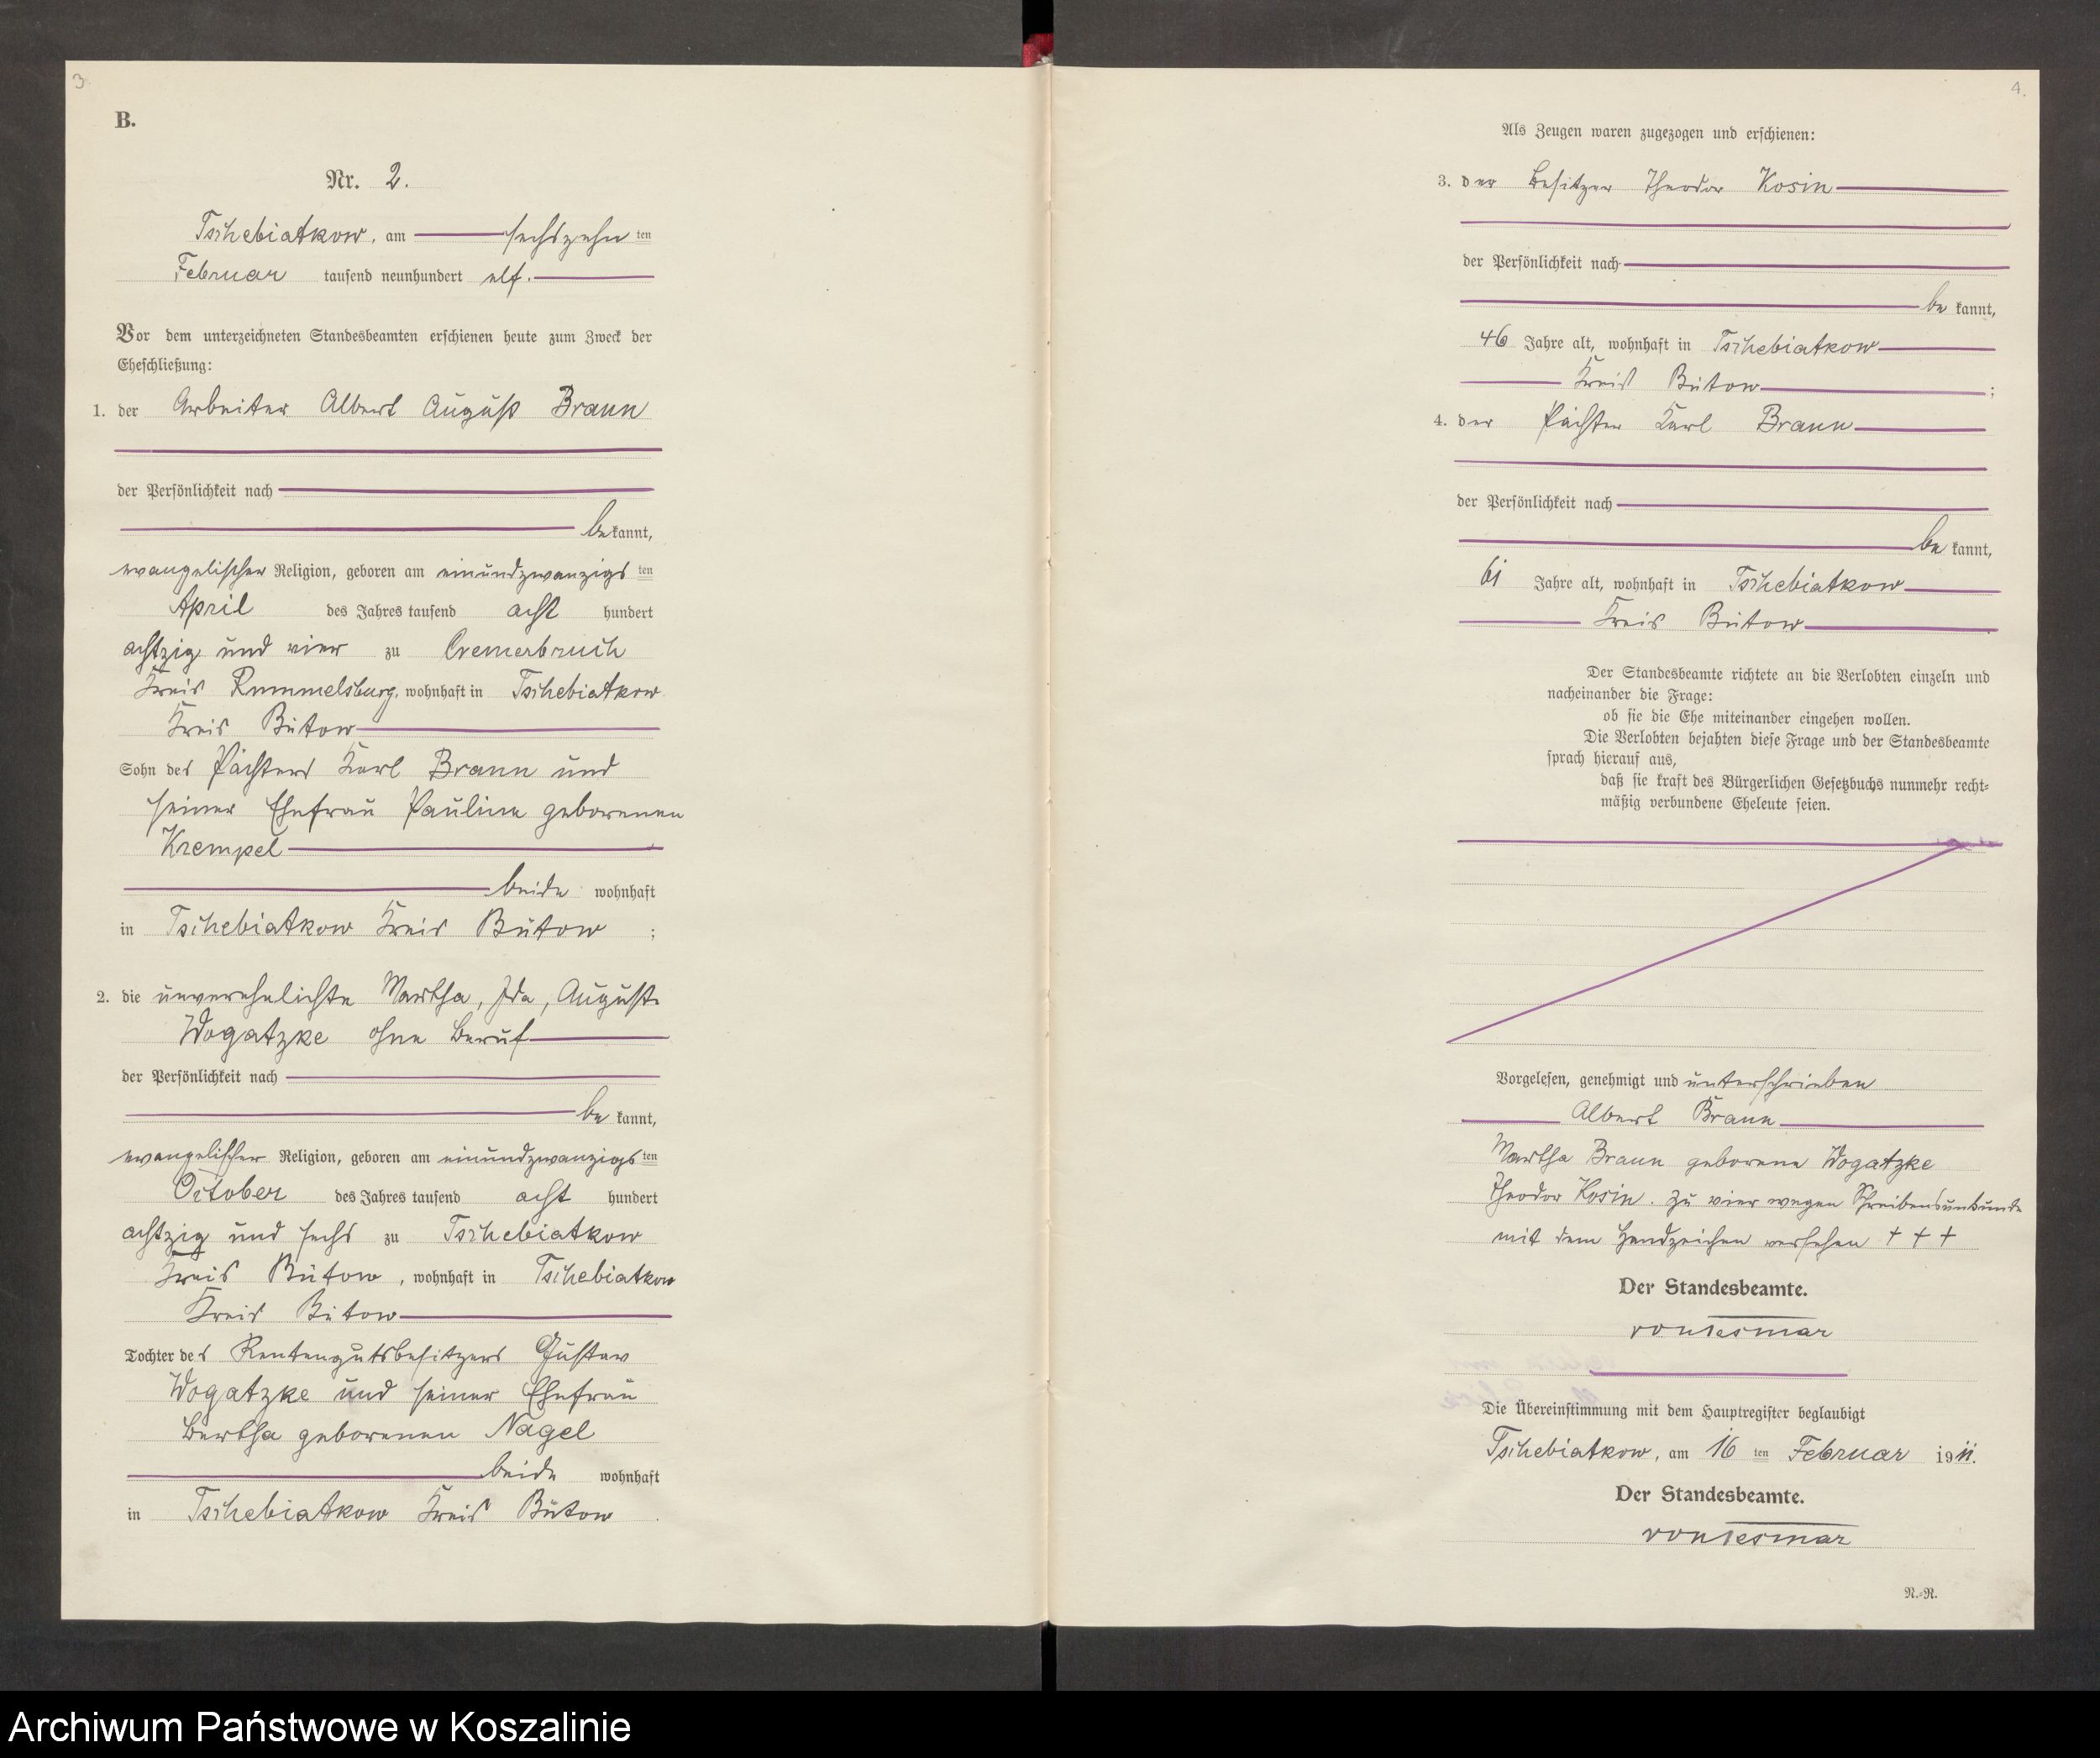 3.
B.
Nr. 2.
Tschebiatkow, am sechszehn ten
Februar tausend neunhundert elf.
Vor dem unterzeichneten Standesbeamten erschienen heute zum Zweck der
Eheschließung:
1. der Arbeiter Albert August Braun
der Persönlichkeit nach
be kannt,
evangelischer Religion, geboren am einundzwanzigs ten
April des Jahres tausend acht hundert
achtzig und vier zu Cremerbruch
Kreis Rummelsburg, wohnhaft in Tschebiatkow
Kreis Bütow
Sohn des Pächters Karl Braun und
seiner Ehefrau Pauline geborenen
Krempel
beide wohnhaft
in Tschebiatkow Kreis Bütow ;
2. die unverehelichte Martha, Ida, Auguste
Wogatzke ohne Beruf
der Persönlichkeit nach
be kannt,
evangelischer Religion, geboren am einundzwanzigs ten
October des Jahres tausend acht hundert
achtzig und sechs zu Tschebiatkow
Kreis Bütow, wohnhaft in Tschebiatkow
Kreis Bütow
Tochter des Rentengutsbesitzers Gustav
Wogatzke und seiner Ehefrau
Bertha geborenen Nagel
beide wohnhaft
in Tschebiatkow Kreis Bütow
4.
Als Zeugen waren zugezogen und erschienen:
3. der Besitzer Theodor Kosin
der Persönlichkeit nach
be kannt,
46 Jahre alt, wohnhaft in Tschebiatkow
Kreis Bütow ;
4. der Pächter Karl Braun
der Persönlichkeit nach
be kannt,
61 Jahre alt, wohnhaft in Tschebiatkow
Kreis Bütow
Der Standesbeamte richtete an die Verlobten einzeln und
nacheinander die Frage:
ob sie die Ehe miteinander eingehen wollen.
Die Verlobten bejahten diese Frage und der Standesbeamte
sprach hierauf aus,
daß sie kraft des Bürgerlichen Gesetzbuchs nunmehr recht-
mäßig verbundene Eheleute seien.
Vorgelesen, genehmigt und unterschrieben
Albert Braun
Martha Braun geborene Wogatzke
Theodor Kosin. Zu vier wegen Schreibensunkunde
mit dem Handzeichen versehen + + +
Der Standesbeamte.
von Tesmar
Die Übereinstimmung mit dem Hauptregister beglaubigt
Tschebiatkow, am 16 ten Februar 1911.
Der Standesbeamte.
von Tesmar
N.-R.
Archiwum Państwowe w Koszalinie